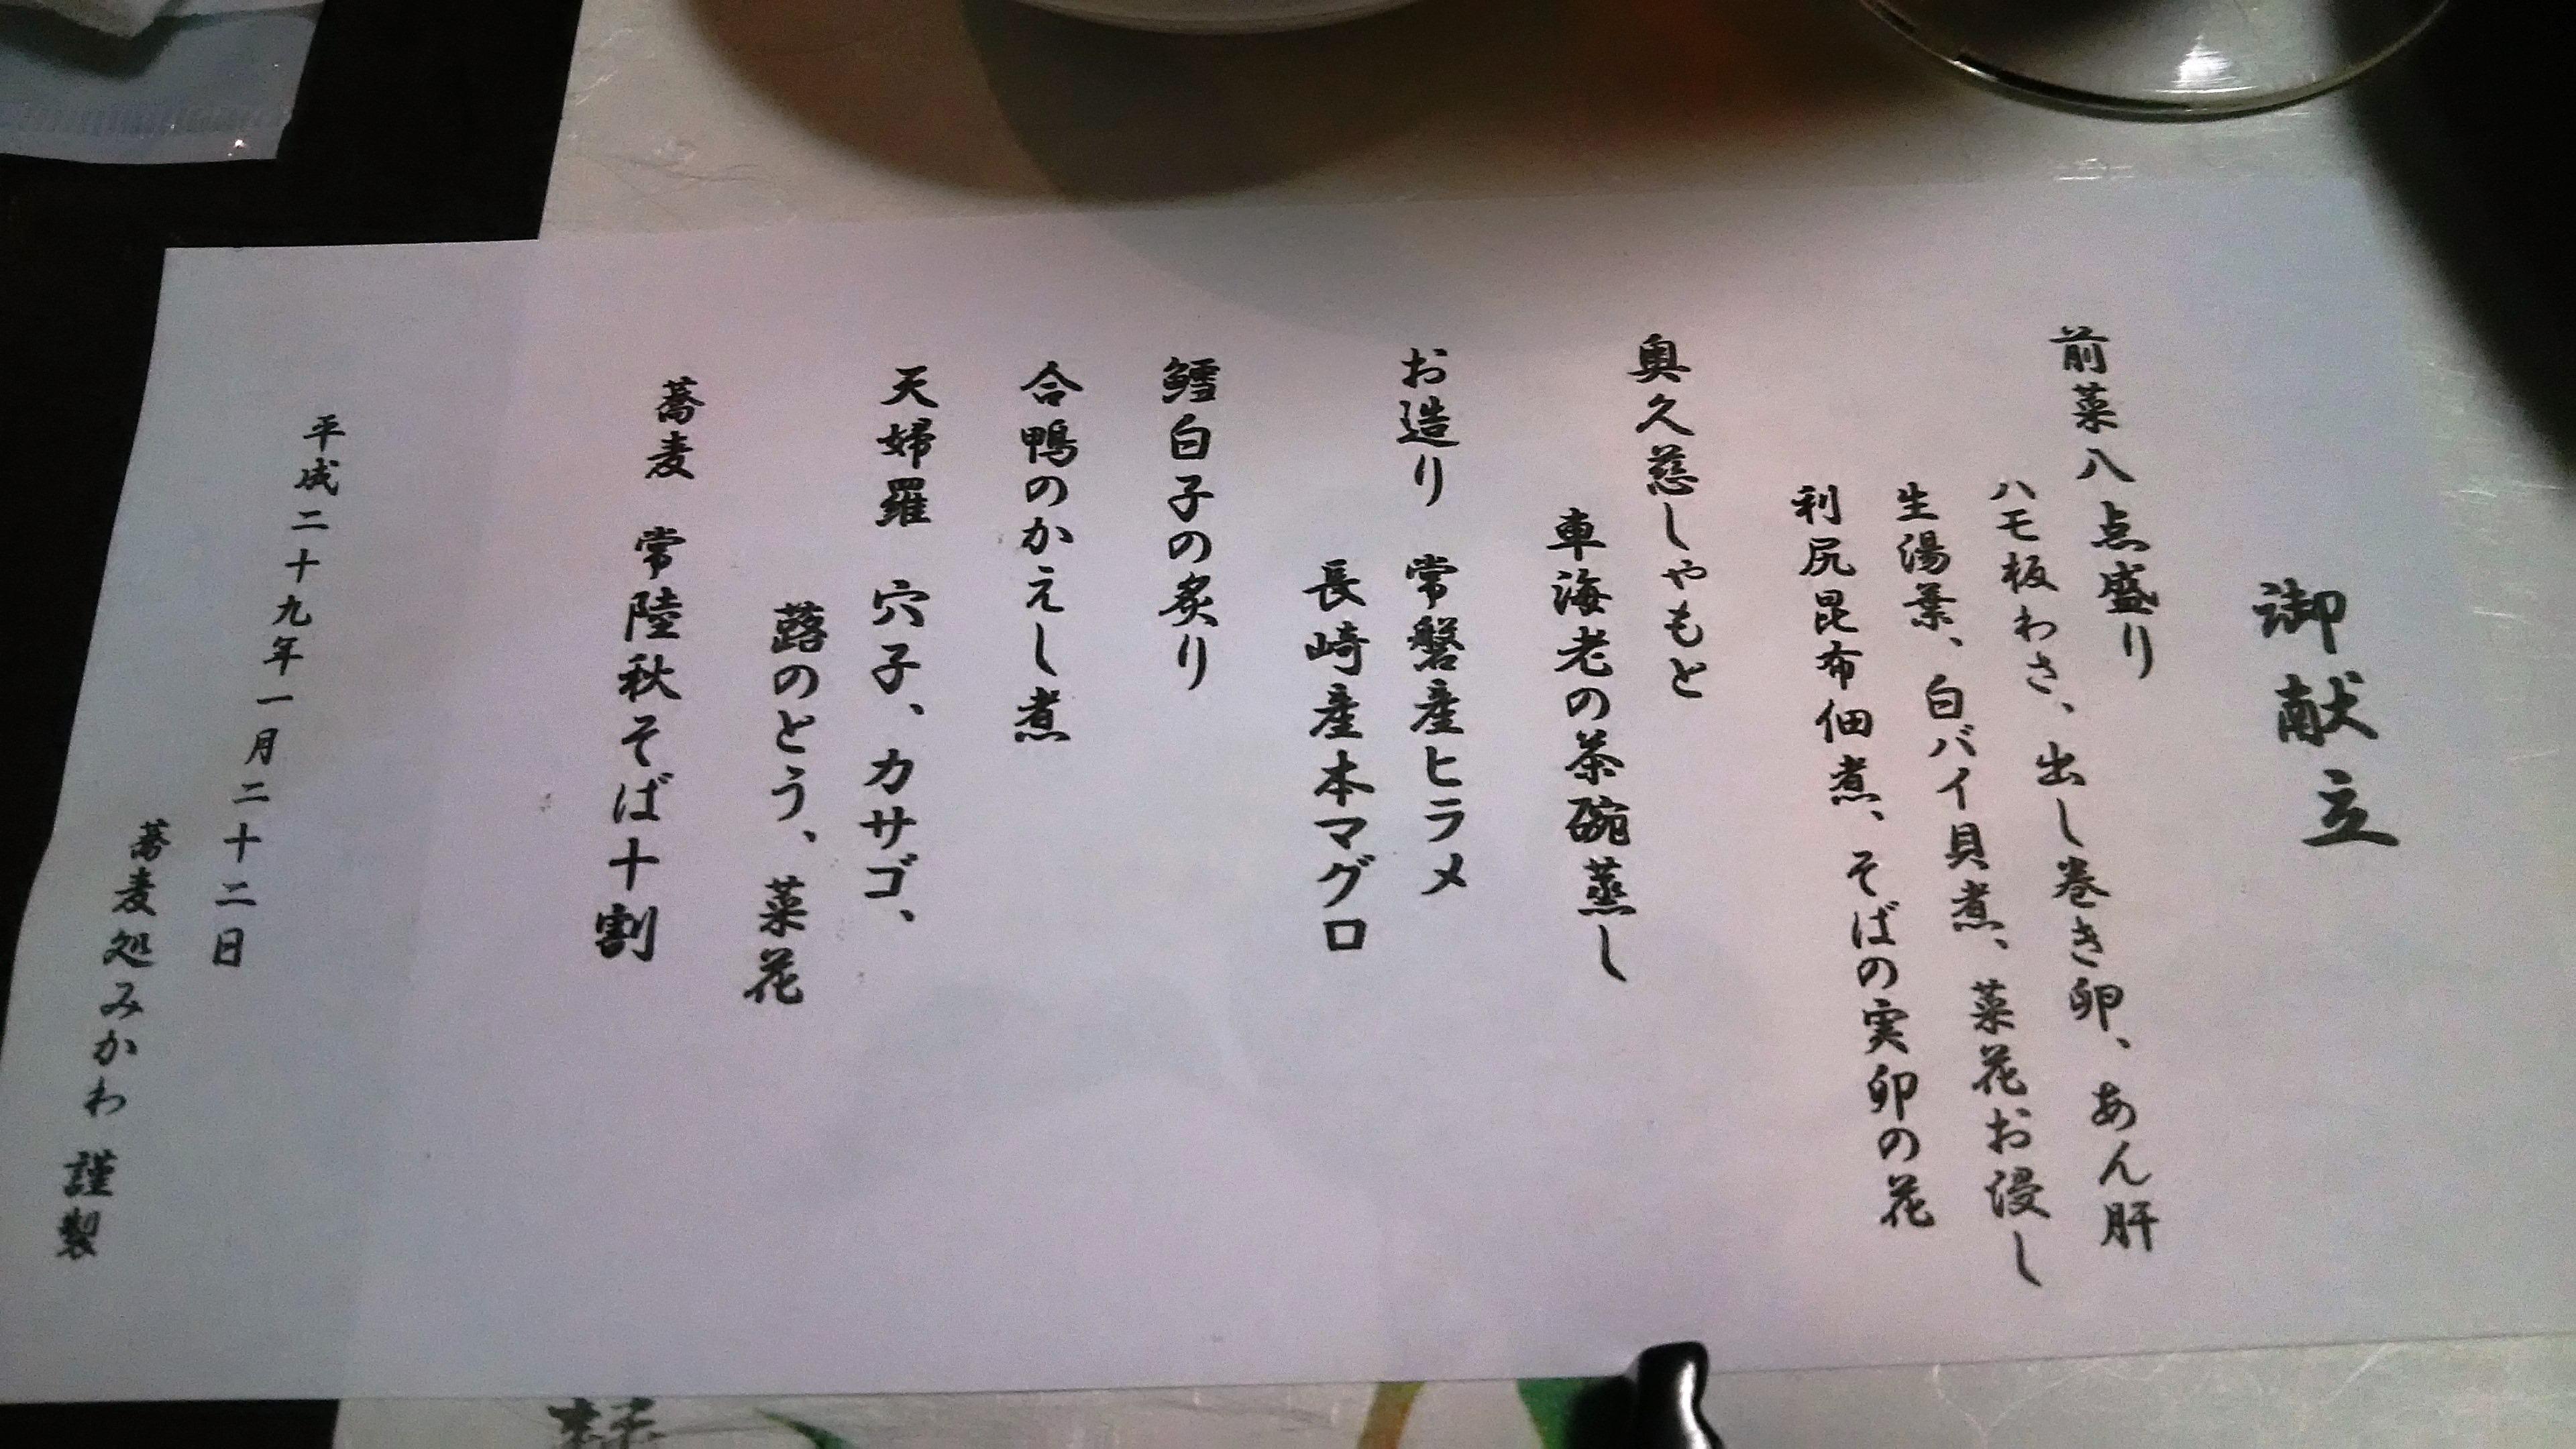 御献立
前菜八点盛り
ハモ板わさ、出し巻き卵、あん肝
生湯葉、白バイ貝煮、菜花お浸し
利尻昆布佃煮、そばの実卯の花
奥久慈しゃもと
車海老の茶碗蒸し
お造り 常磐産ヒラメ
長崎産本マグロ
鱈白子の炙り
合鴨のかえし煮
天婦羅 穴子、カサゴ、
蕗のとう、菜花
蕎麦 常陸秋そば十割
平成二十九年一月二十二日
蕎麦処みかわ 謹製